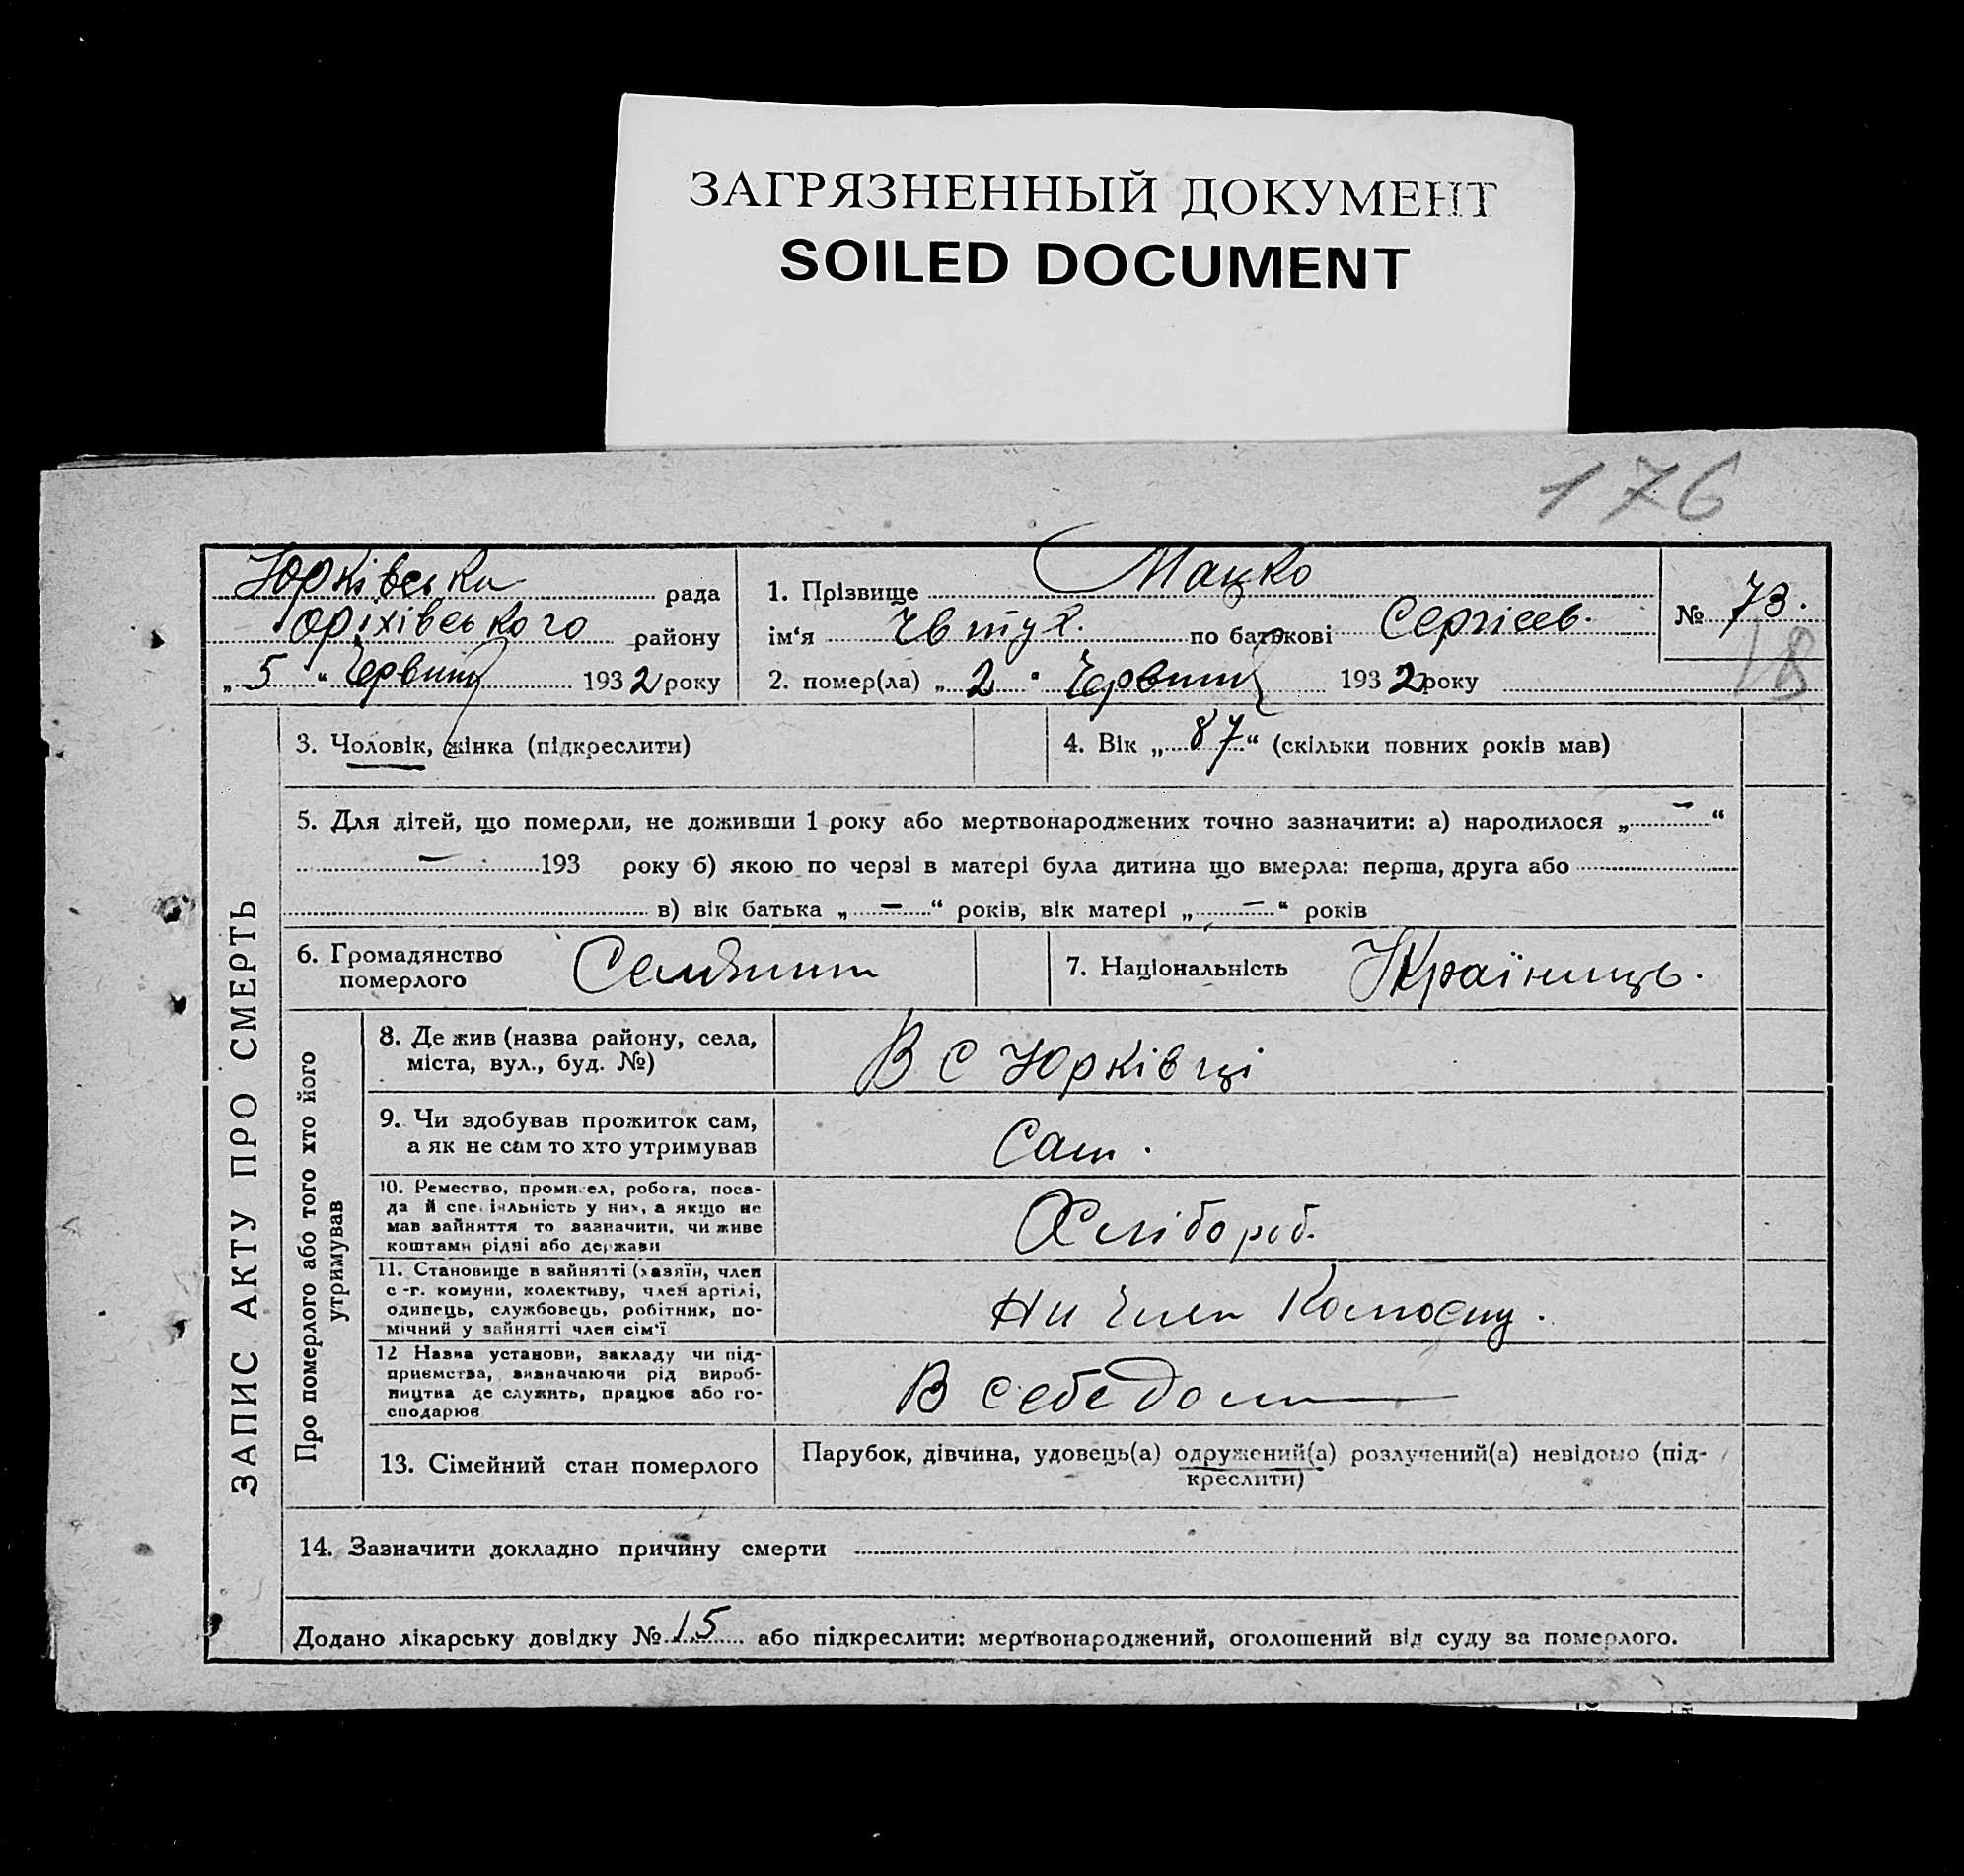 ЗАГРЯЗНЕННЫЙ ДОКУМЕНТ
SOILED DOCUMENT
176
Юрківська рада
Оріхівського району
„5“ Червня 1932 року
1. Прізвище Мацко
ім‘я Євтух. по батькові Сергієв.
2. помер(ла) „2“ Червня 1932 року
№ 73.
18
ЗАПИС АКТУ ПРО СМЕРТЬ
3. Чоловік, жінка (підкреслити)
4. Вік „87“ (скільки повних років мав)
5. Для дітей, що померли, не доживши 1 року або мертвонароджених точно зазначити: а) народилося „—“
— 193 року б) якою по черзі в матері була дитина що вмерла: перша, друга або
в) вік батька „—“ років, вік матері „—“ років
6. Громадянство
померлого
Селянин
7. Національність Українець.
Про померлого або того хто його
утримував
8. Де жив (назва району, села,
міста, вул., буд. №)
В с Юрківці
9. Чи здобував прожиток сам,
а як не сам то хто утримував
Сам.
10. Ремество, промисел, робота, поса-
да й спеціяльність у них, а якщо не
мав зайняття то зазначити, чи живе
коштами рідні або держави
Хлібороб.
11. Становище в зайнятті (хазяїн, член
с-г. комуни, колективу, член артілі,
одинець, службовець, робітник, по-
мічний у зайнятті член сім‘ї
Ни член
12 Назва установи, закладу чи під-
приємства, визначаючи рід вироб-
ництва де служить, працює або го-
сподарює
В себе дома
13. Сімейний стан померлого
Парубок, дівчина, удовець(а) одружений(а) розлучений(а) невідомо (під-
креслити)
14. Зазначити докладно причину смерти
Додано лікарську довідку № 15 або підкреслити: мертвонароджений, оголошений від суду за померлого.